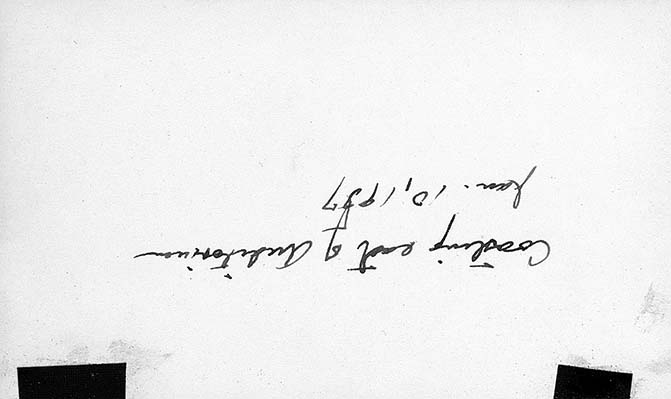 Coasting east of Auditorium
Jan. 10, 1957